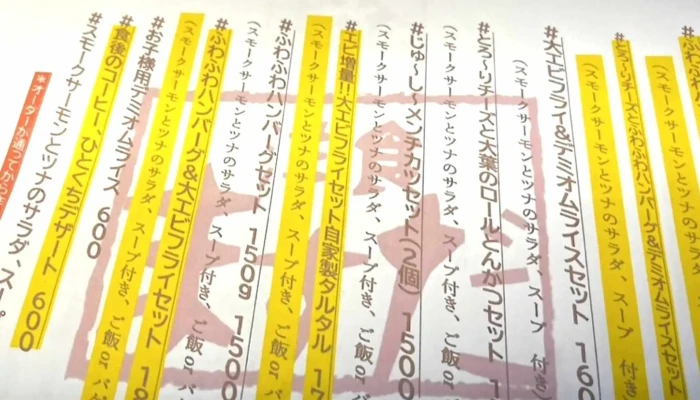 #ふわふわハ
(スモークサーモンとツナのサラダ、
(スモークサーモンとツナのサラダ、スープ
#とろ〜りチーズとふわふわハンバーグ&デミオムライスセット
(スモークサーモンとツナのサラダ、スープ 付き)
#大エビフライ&デミオムライスセット 160
(スモークサーモンとツナのサラダ、スープ 付き)
#とろ〜りチーズと大葉のロールとんかつセット 1
(スモークサーモンとツナのサラダ、スープ付き、ご飯 or パ
#じゅ〜し〜メンチカツセット(2個) 1500
(スモークサーモンとツナのサラダ、スープ付き、ご飯 or
#エビ増量!!大エビフライセット自家製タルタル 17
(スモークサーモンとツナのサラダ、スープ付き、ご飯 or
#ふわふわハンバーグセット 150g 1500
(スモークサーモンとツナのサラダ、スープ付き、ご飯 or パ
#ふわふわハンバーグ&大エビフライセット 18
(スモークサーモンとツナのサラダ、スープ付き、ご飯 or パ
#お子様用デミオムライス 600
#食後のコーヒー、ひとくちデザート 600
#スモークサーモンとツナのサラダ、スー
*オーダーが通ってから